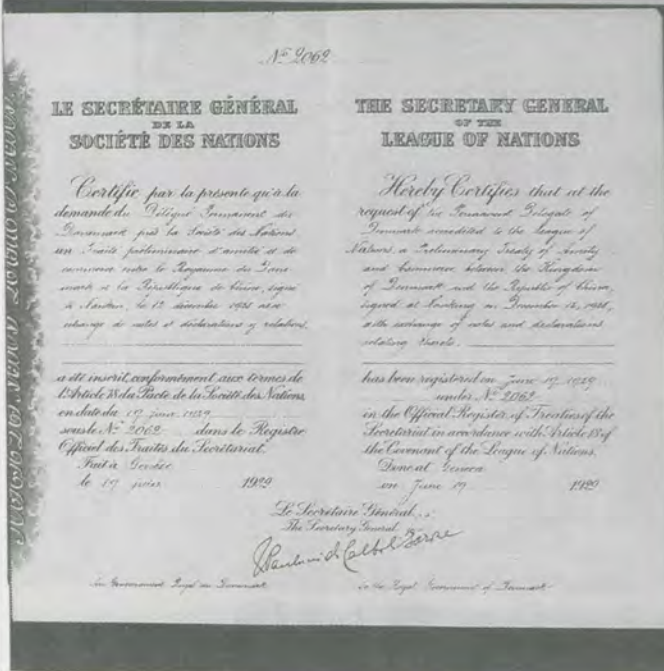 Nº 2062
LE SECRÉTAIRE GÉNÉRAL
DE LA
SOCIÉTÉ DES NATIONS
Certifie par la présente qu'à la
demande du Délégué Permanent du
Danemark près la Société des Nations
un Traité préliminaire d'amitié et de
commerce entre le Royaume du Dane-
mark et la République de Chine, signé
à Nankin, le 12 décembre 1928 avec
échange de notes et déclarations y relatives,
a été inscrit, conformément aux termes de
l'Article 18 du Pacte de la Société des Nations,
en date du 19 juin 1929
sous le Nº 2062 dans le Registre
Officiel des Traités du Secrétariat.
Fait à Genève
le 19 juin 1929
THE SECRETARY GENERAL
OF THE
LEAGUE OF NATIONS
Hereby Certifies that at the
request of the Permanent Delegate of
Denmark accredited to the League of
Nations, a Preliminary Treaty of Amity
and Commerce between the Kingdom
of Denmark and the Republic of China,
signed at Nanking on December 12, 1928,
with exchange of notes and declarations
relating thereto.
has been registered on June 19 1929
under Nº 2062
in the Official Register of Treaties of the
Secretariat in accordance with Article 18 of
the Covenant of the League of Nations.
Done at Geneva
on June 19 1929
Le Secrétaire Général
The Secretary General
Gouvernement Royal du Danemark
to the Royal Government of Denmark